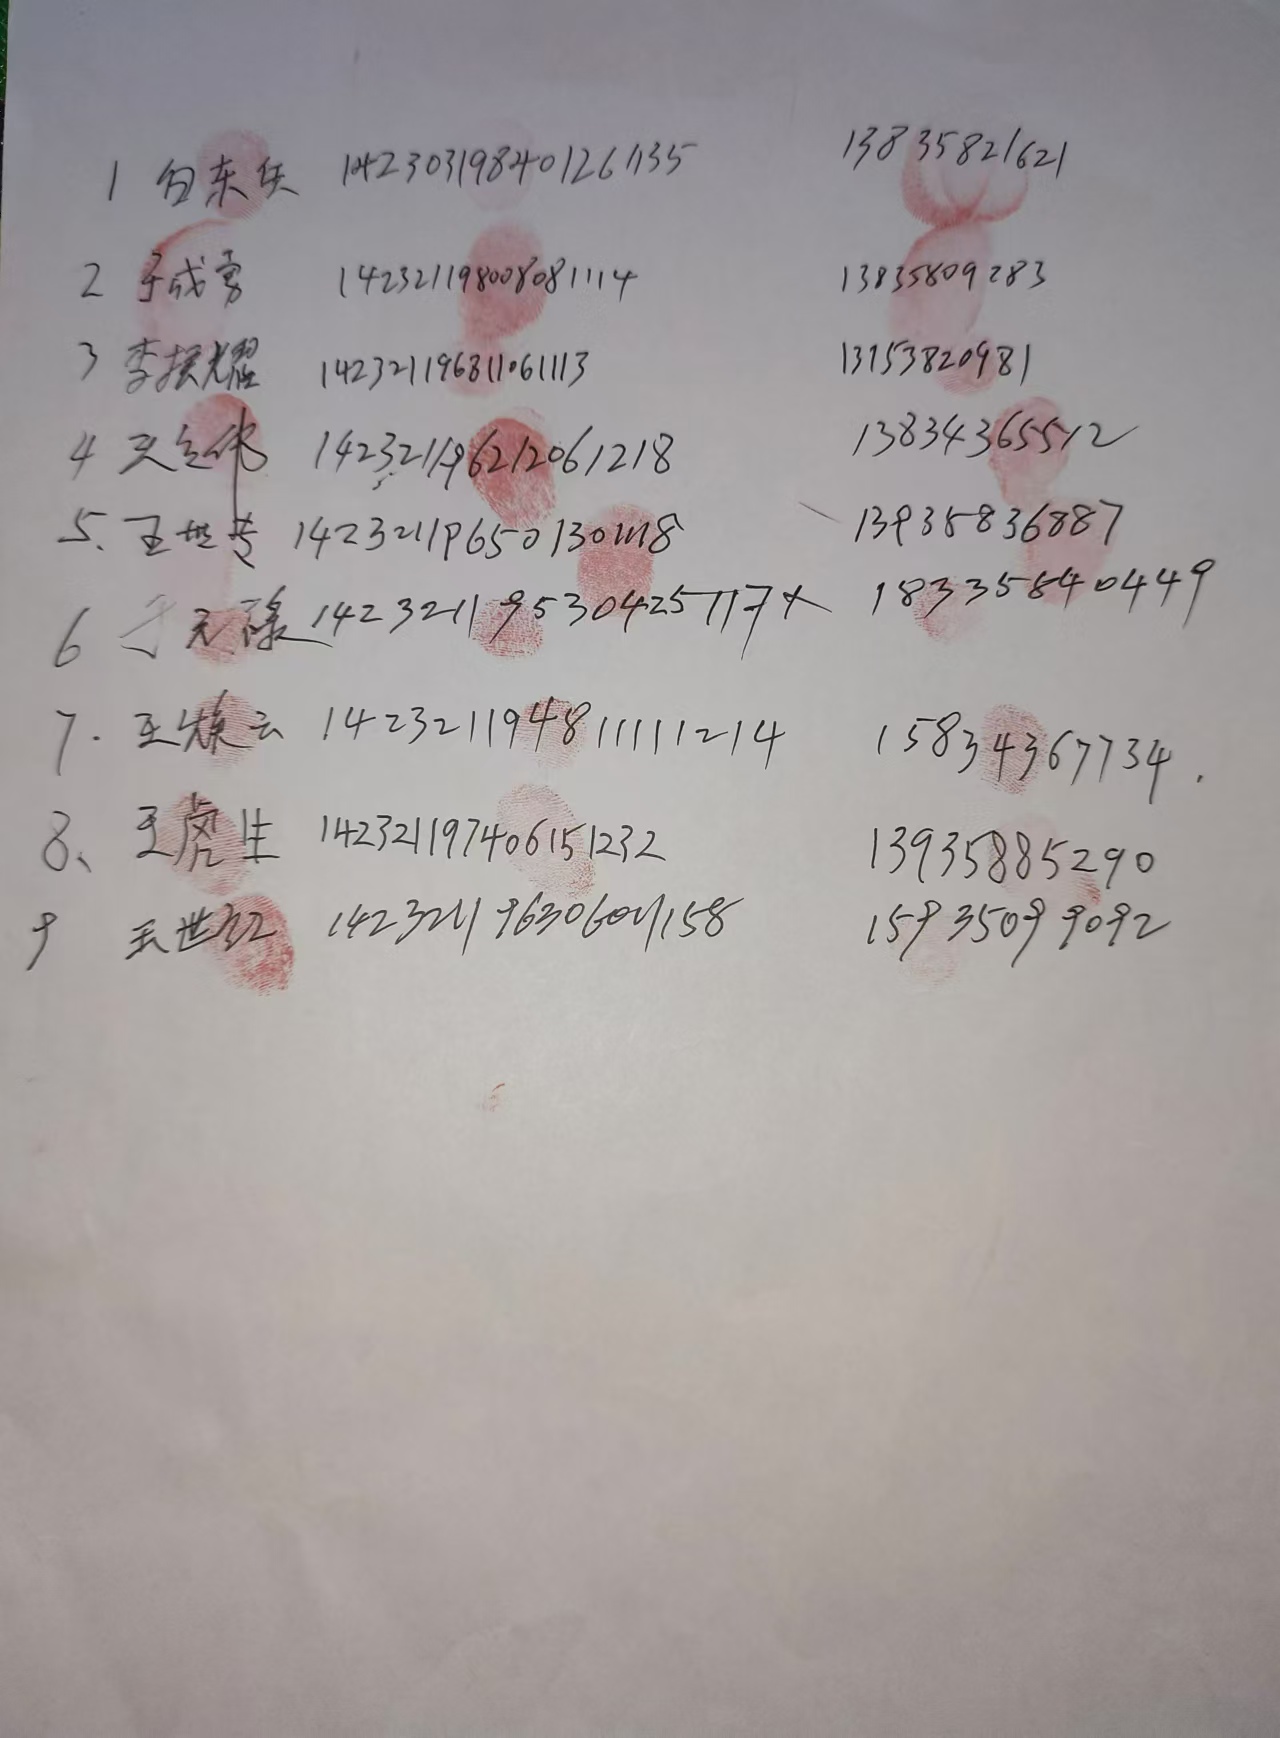 1 白东兵 142303198401261135 13835821621
2 于成勇 142321198008081114 13835809283
3 李振耀 142321196811061113 13753820981
4 142321196212061218 13834365512
5. 王世 142321196501301118 13935836887
6 于元禄 14232119530425117X 18335840449
7. 王焕云 142321194811111214 15834367734.
8、王虎生 142321197406151232 13935885290
9 王世 142321196306041158 15935099092